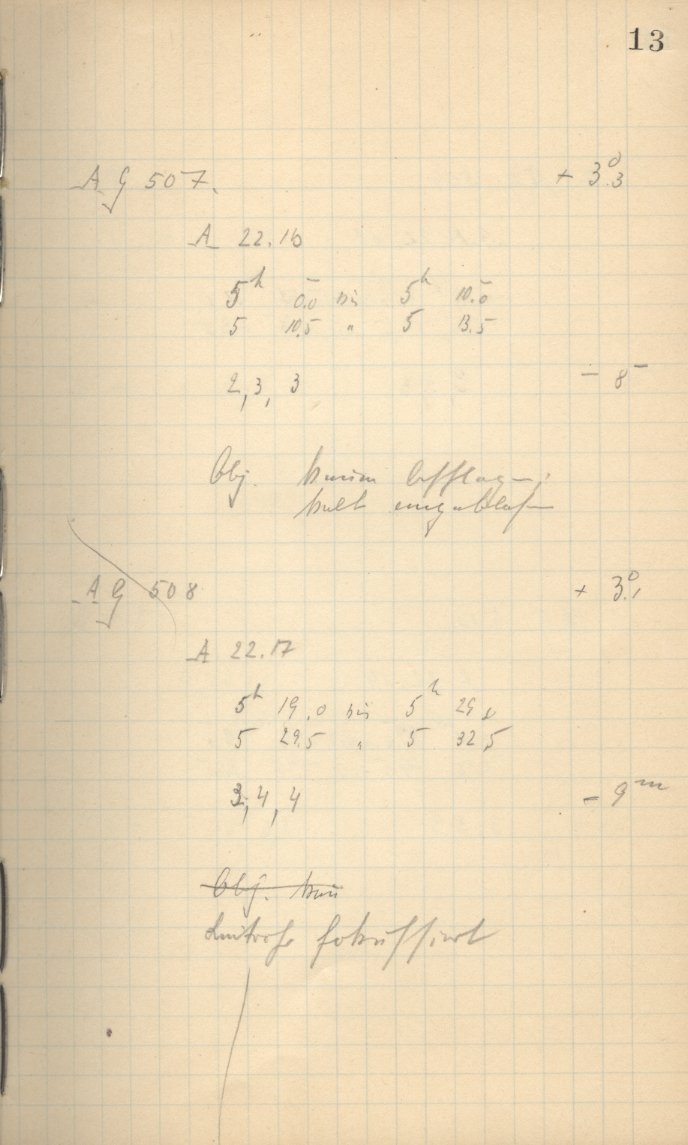 13
AG 507. + 3°.3
A 22.16
5h 0.0 bis 5h 10.0
5 10.5 " 5 13.5
2, 3, 3 - 8m
Obj. kaum beschlagen;
kalt angeblasen
AG 508 + 3°.1
A 22.17
5h 19.0 bis 5h 29.0
5 29.5 " 5 32.5
3, 4, 4 - 9m
Obj. kau
Leitrohr fokussiert